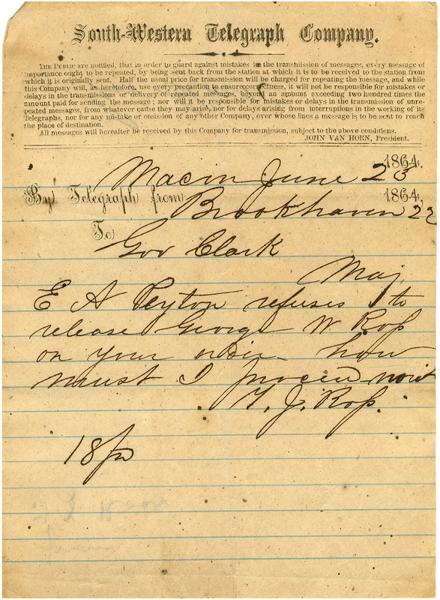 South-Western Telegraph Company.
THE PUBLIC are notified, that in order to guard against mistakes in the transmission of messages, every message of
importance ought to be repeated, by being sent back from the station at which it is to be received to the station from
which it is originally sent. Half the usual price for transmission will be charged for repeating the message, and while
this Company will, as heretofore, use every precaution to ensure correctness, it will not be responsible for mistakes or
delays in the transmissions or delivery of repeated messages, beyond an amount exceeding two hundred times the
amount paid for sending the message; nor will it be responsible for mistakes or delays in the transmission of unre-
peated messages, from whatever cause they may arise, nor for delays arising from interruptions in the working of its
Telegraphs, nor for any mistake or omission of any other Company, over whose lines a message is to be sent to reach
the place of destination.
All messages will hereafter be received by this Company for transmission, subject to the above conditions.
JOHN VAN HORN, President.
Macon June 23 1864.
By Telegraph from Brookhaven 22 1864.
To Gov Clark
Maj
E A Peyton refuses to
release George W Ross
on your order how
must I proceed now
J. Ross.
18/